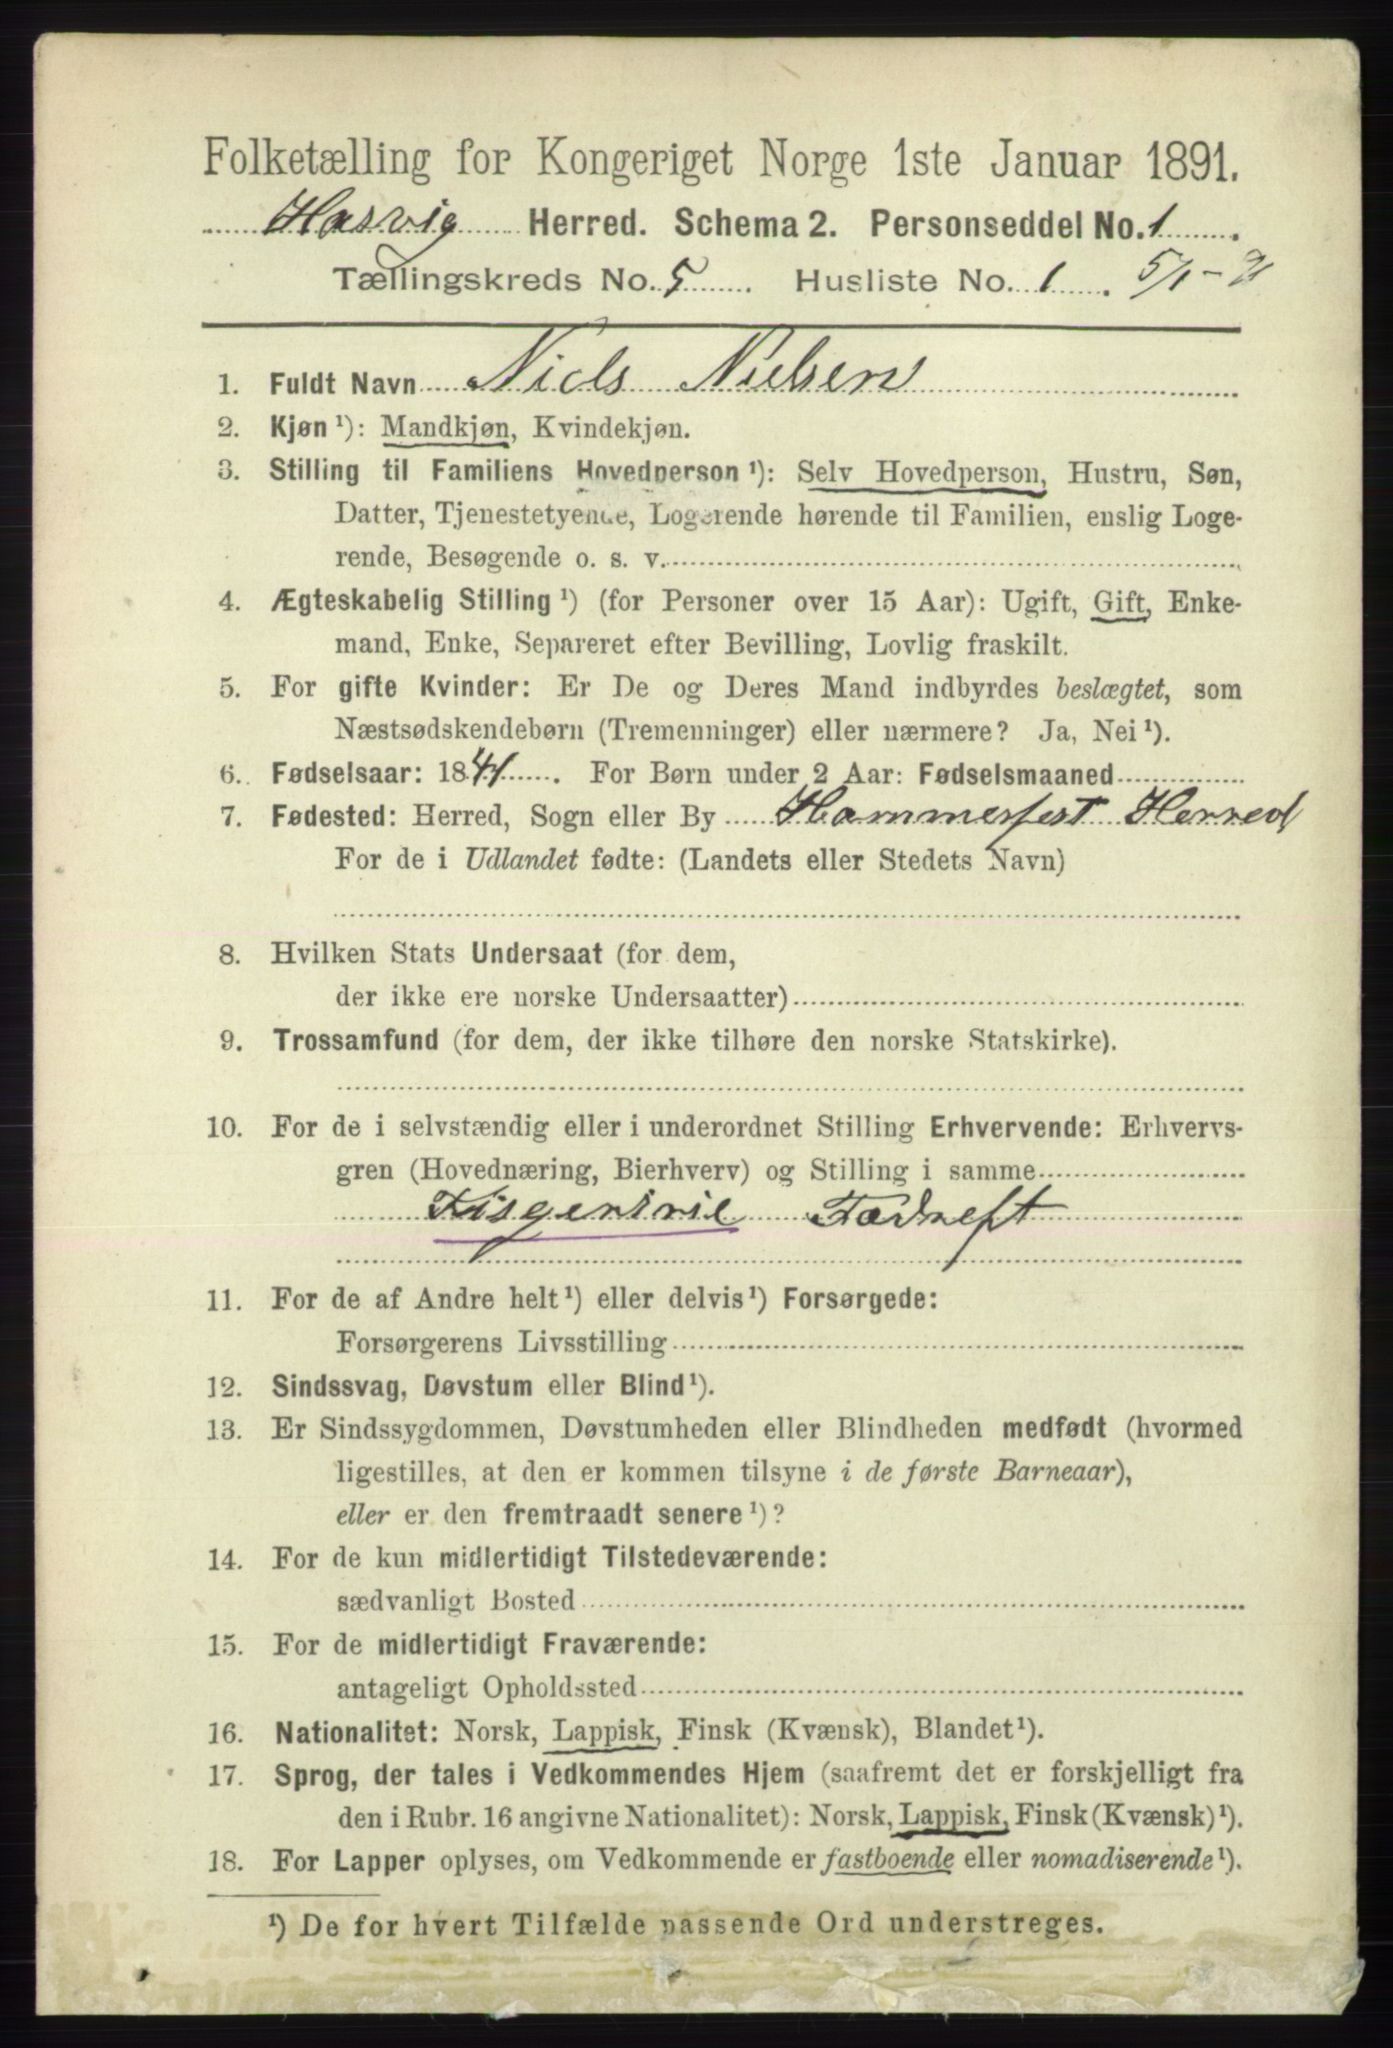 Folketælling for Kongeriget Norge 1ste Januar 1891.
Hasvig Herred. Schema 2. Personseddel No. 1.
Tællingskreds No. 5. Husliste No. 1. 5/1-91
1. Fuldt Navn Niels Nielsen
2. Kjøn ¹): Mandkjøn, Kvindekjøn.
3. Stilling til Familiens Hovedperson ¹): Selv Hovedperson, Hustru, Søn,
Datter, Tjenestetyende, Logerende hørende til Familien, enslig Loge-
rende, Besøgende o. s. v.
4. Ægteskabelig Stilling ¹) (for Personer over 15 Aar): Ugift, Gift, Enke-
mand, Enke, Separeret efter Bevilling, Lovlig fraskilt.
5. For gifte Kvinder: Er De og Deres Mand indbyrdes beslægtet, som
Næstsødskendebørn (Tremenninger) eller nærmere? Ja, Nei ¹).
6. Fødselsaar: 1841. For Børn under 2 Aar: Fødselsmaaned
7. Fødested: Herred, Sogn eller By Hammerfest Herred
For de i Udlandet fødte: (Landets eller Stedets Navn)
8. Hvilken Stats Undersaat (for dem,
der ikke ere norske Undersaatter)
9. Trossamfund (for dem, der ikke tilhøre den norske Statskirke).
10. For de i selvstændig eller i underordnet Stilling Erhvervende: Erhvervs-
gren (Hovednæring, Bierhverv) og Stilling i samme
11. For de af Andre helt ¹) eller delvis ¹) Forsørgede:
Forsørgerens Livsstilling
12. Sindssvag, Døvstum eller Blind ¹).
13. Er Sindssygdommen, Døvstumheden eller Blindheden medfødt (hvormed
ligestilles, at den er kommen tilsyne i de første Barneaar),
eller er den fremtraadt senere ¹)?
14. For de kun midlertidigt Tilstedeværende:
sædvanligt Bosted
15. For de midlertidigt Fraværende:
antageligt Opholdssted
16. Nationalitet: Norsk, Lappisk, Finsk (Kvænsk), Blandet ¹).
17. Sprog, der tales i Vedkommendes Hjem (saafremt det er forskjelligt fra
den i Rubr. 16 angivne Nationalitet): Norsk, Lappisk, Finsk (Kvænsk) ¹).
18. For Lapper oplyses, om Vedkommende er fastboende eller nomadiserende ¹).
¹) De for hvert Tilfælde passende Ord understreges.